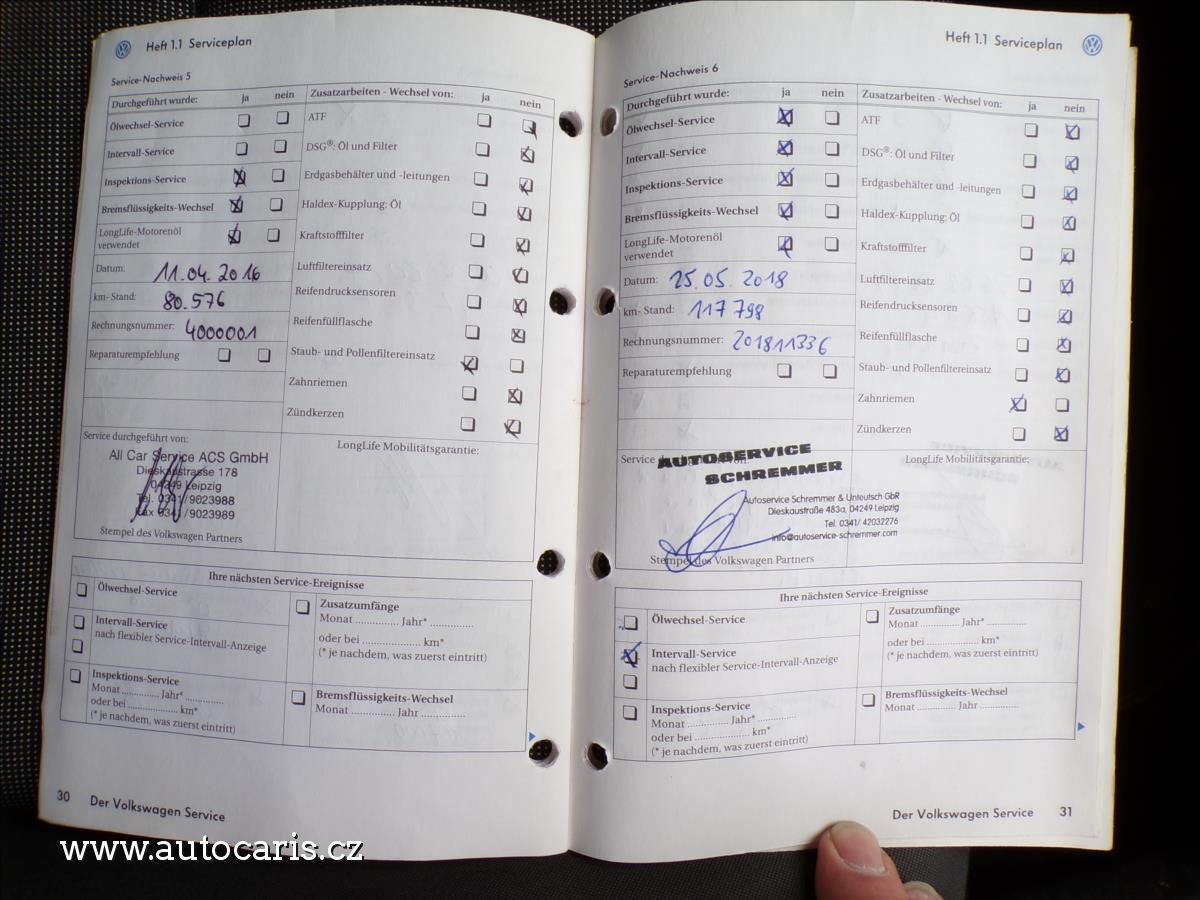 Heft 1.1 Serviceplan
Service-Nachweis 5
Durchgeführt wurde: ja nein
Ölwechsel-Service
Intervall-Service
Inspektions-Service
Bremsflüssigkeits-Wechsel
LongLife-Motorenöl
verwendet
Datum: 11.04.2016
km- Stand: 80.576
Rechnungsnummer: 4000001
Reparaturempfehlung
Zusatzarbeiten - Wechsel von: ja nein
ATF
DSG®: Öl und Filter
Erdgasbehälter und -leitungen
Haldex-Kupplung: Öl
Kraftstofffilter
Luftfiltereinsatz
Reifendrucksensoren
Reifenfüllflasche
Staub- und Pollenfiltereinsatz
Zahnriemen
Zündkerzen
Service durchgeführt von:
All Car Service ACS GmbH
Dieskaustrasse 178
04249 Leipzig
Tel. 0341/9023988
Fax 0341/9023989
Stempel des Volkswagen Partners
LongLife Mobilitätsgarantie:
Ihre nächsten Service-Ereignisse
Ölwechsel-Service
Intervall-Service
nach flexibler Service-Intervall-Anzeige
Inspektions-Service
Monat ............. Jahr* .............
oder bei .......................... km*
(* je nachdem, was zuerst eintritt)
Zusatzumfänge
Monat ............... Jahr* ...............
oder bei .................... km*
(* je nachdem, was zuerst eintritt)
Bremsflüssigkeits-Wechsel
Monat ............... Jahr ...............
30 Der Volkswagen Service
Heft 1.1 Serviceplan
Service-Nachweis 6
Durchgeführt wurde: ja nein
Ölwechsel-Service
Intervall-Service
Inspektions-Service
Bremsflüssigkeits-Wechsel
LongLife-Motorenöl
verwendet
Datum: 25.05.2018
km- Stand: 117 798
Rechnungsnummer: 201811336
Reparaturempfehlung
Zusatzarbeiten - Wechsel von: ja nein
ATF
DSG®: Öl und Filter
Erdgasbehälter und -leitungen
Haldex-Kupplung: Öl
Kraftstofffilter
Luftfiltereinsatz
Reifendrucksensoren
Reifenfüllflasche
Staub- und Pollenfiltereinsatz
Zahnriemen
Zündkerzen
Service von:
AUTOSERVICE
SCHREMMER
Autoservice Schremmer & Unteutsch GbR
Dieskaustraße 483a, 04249 Leipzig
Tel. 0341/ 42032276
info@autoservice-schremmer.com
Stempel des Volkswagen Partners
LongLife Mobilitätsgarantie:
Ihre nächsten Service-Ereignisse
Ölwechsel-Service
Intervall-Service
nach flexibler Service-Intervall-Anzeige
Inspektions-Service
Monat ............. Jahr* .............
oder bei .......................... km*
(* je nachdem, was zuerst eintritt)
Zusatzumfänge
Monat ............... Jahr* ...............
oder bei .................... km*
(* je nachdem, was zuerst eintritt)
Bremsflüssigkeits-Wechsel
Monat ............... Jahr ...............
Der Volkswagen Service 31
www.autocaris.cz